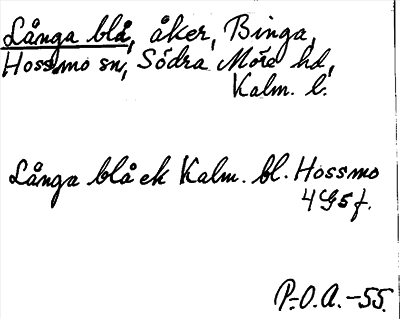 Långa blå, åker, Binga,
Hossmo sn, Södra Möre hd,
Kalm. l.
Långa blå ek Kalm. bl. Hossmo
4G5f.
P.-O.A.-55.